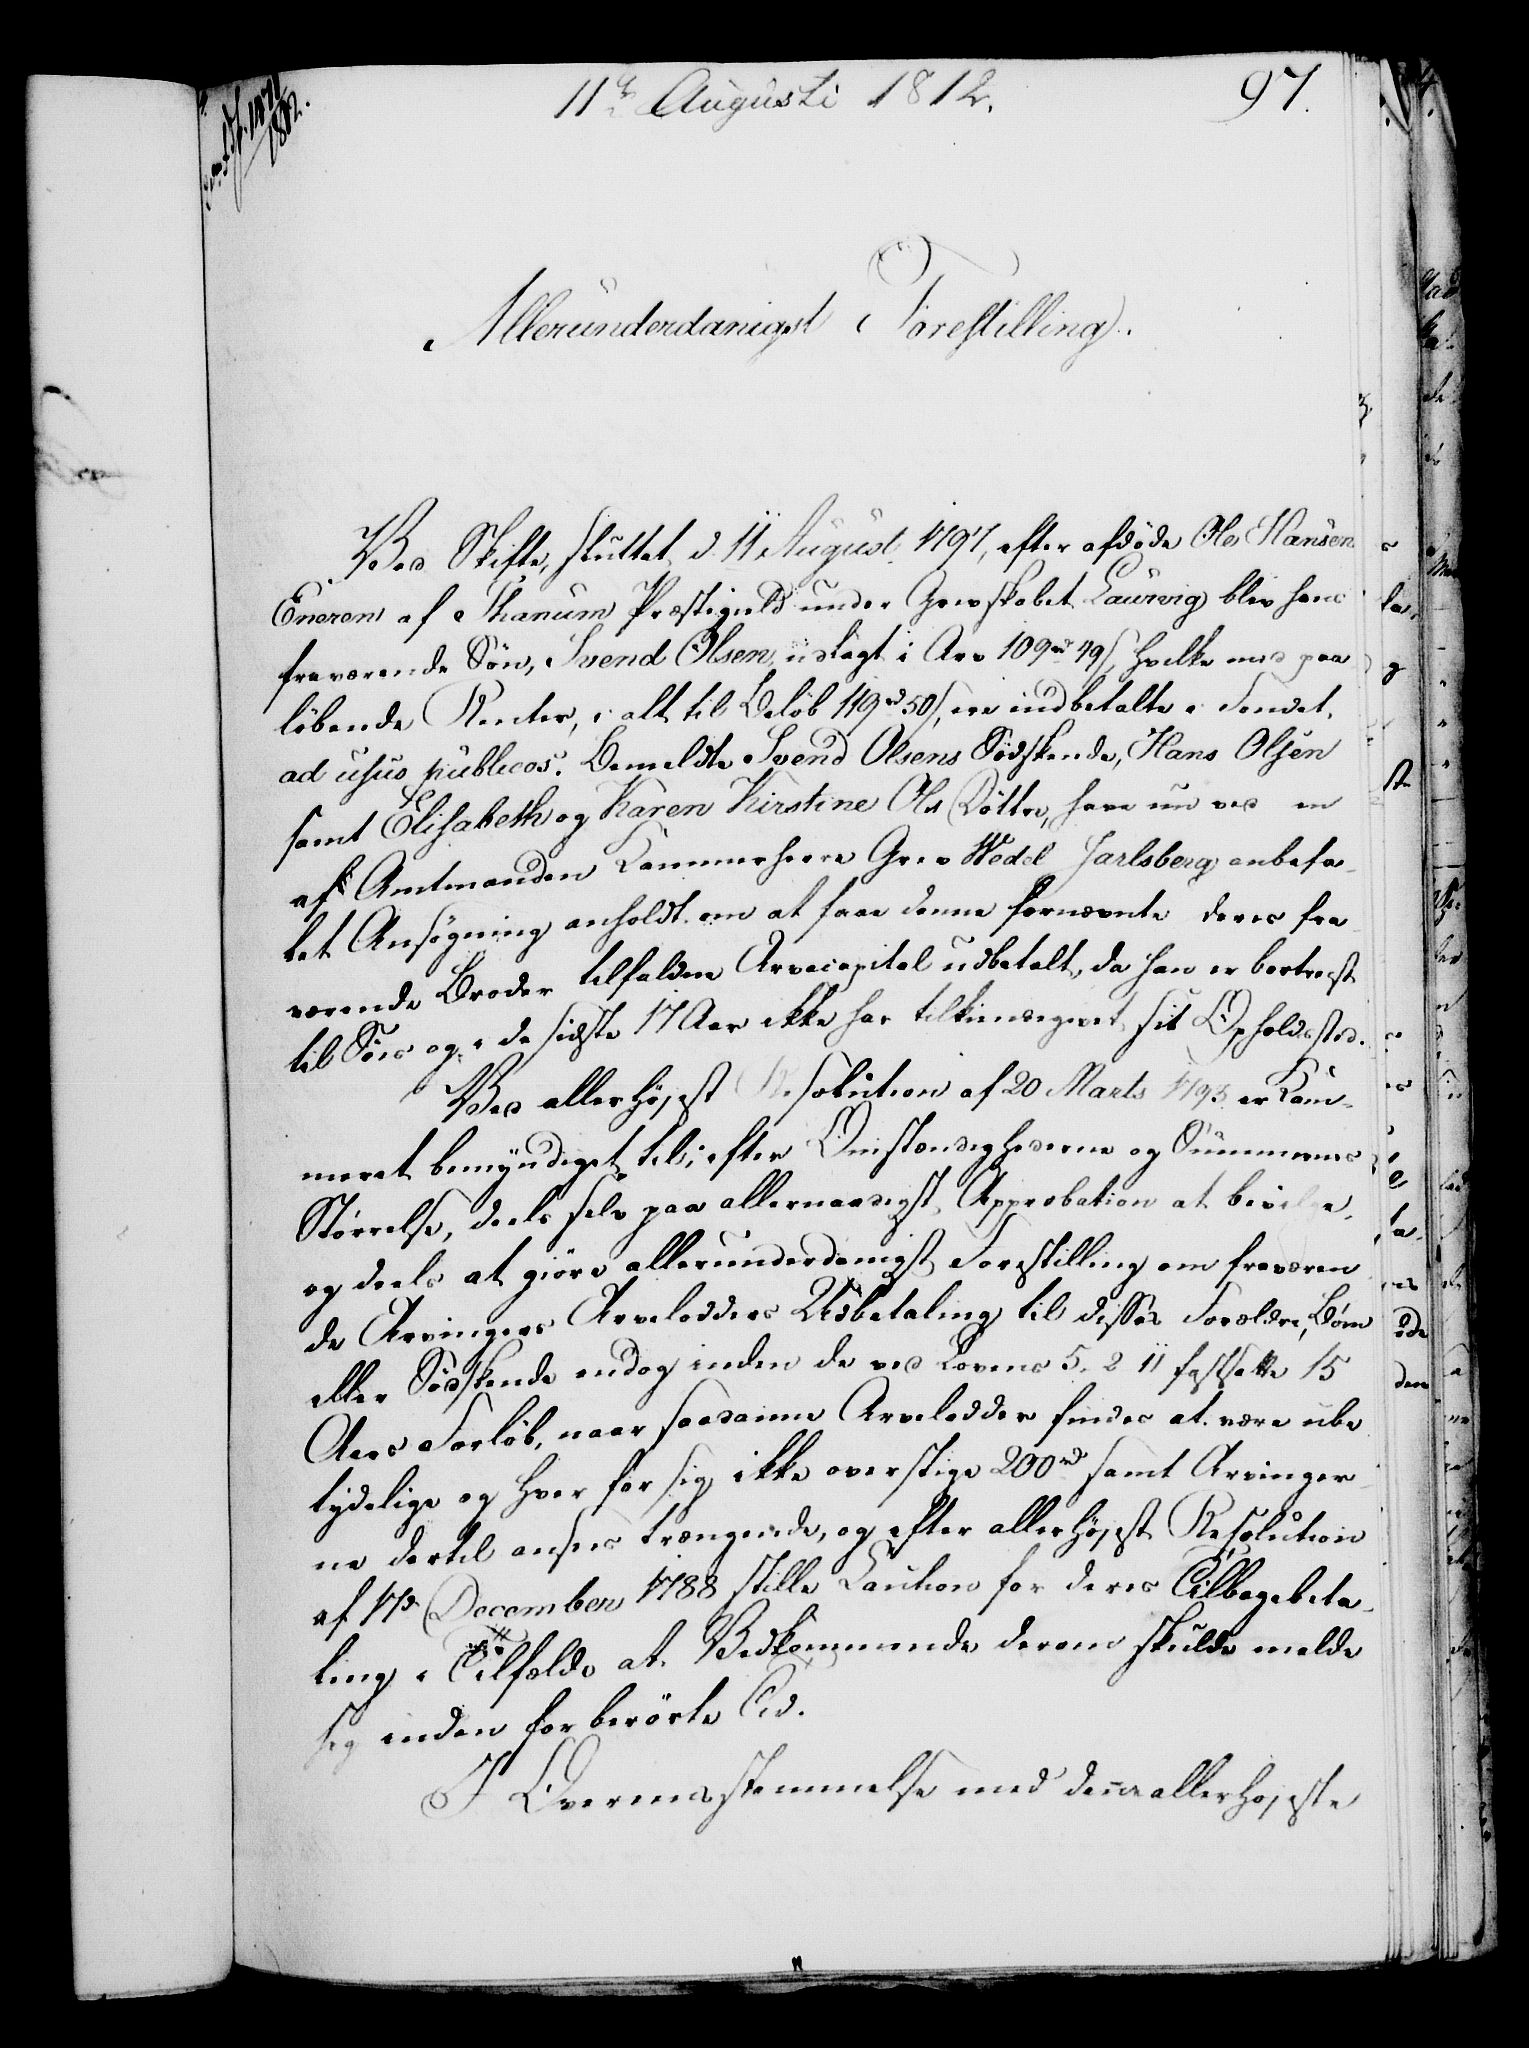 11te Augusti 1812.
97.
Allerunderdanigst Forestilling.
Ved Skifte, sluttet d. 11 August 1797, efter afdøde Ole Hansen
Eneren af Thanum Præstegield under Grevskabet Laurvig blev hans
fraværende Søn, Svend Olsen, udlagt i Arv 109rd 49s, hvilke med paa
løbende Renter, i alt til Beløb 119rd 50s, ere indbetalte i Fondet
ad usus publicos. Bemeldte Svend Olsens Sødskende, Hans Olsen
samt Elisabeth og Karen Kirstine Ols Døttre, have nu ved en
af Amtmanden Kammerherre Grev Wedel Jarlsberg anbefa-
let Ansøgning anholdt om at faae denne fornævnte deres fra
værende Broder tilfaldne Arvecapital udbetalt, da han er bortreist
til Søes og i de sidste 17 Aar ikke har tilkiendegivet sit Opholdssted.
Ved allerhøjest Resolution af 20 Marts 1793 er Kam-
meret bemyndiget til, efter Omstændighederne og Summernes
Størrelse, deels selv paa allernaadigst Approbation at bevilge,
og deels at giøre allerunderdanigst Forestilling om fraværen
de Arvingers Arvelodders Udbetaling til disses Forældre, Børn
eller Sødskende endog inden de ved Lovens 5. 2 11 fastsatte 15
Aars Forløb, naar saadanne Arvelodder findes at være ube
tydelige og hver for sig ikke overstige 200rd samt Arvinger-
ne dertil ansees trængende, og efter allerhøjest Resolution
af 17de December 1788 stille Caution for deres Tilbagebeta-
ling i Tilfælde at Vedkommende derom skulde melde
sig inden forberørte Tid.
I Overensstemmelse med denne allerhøjeste